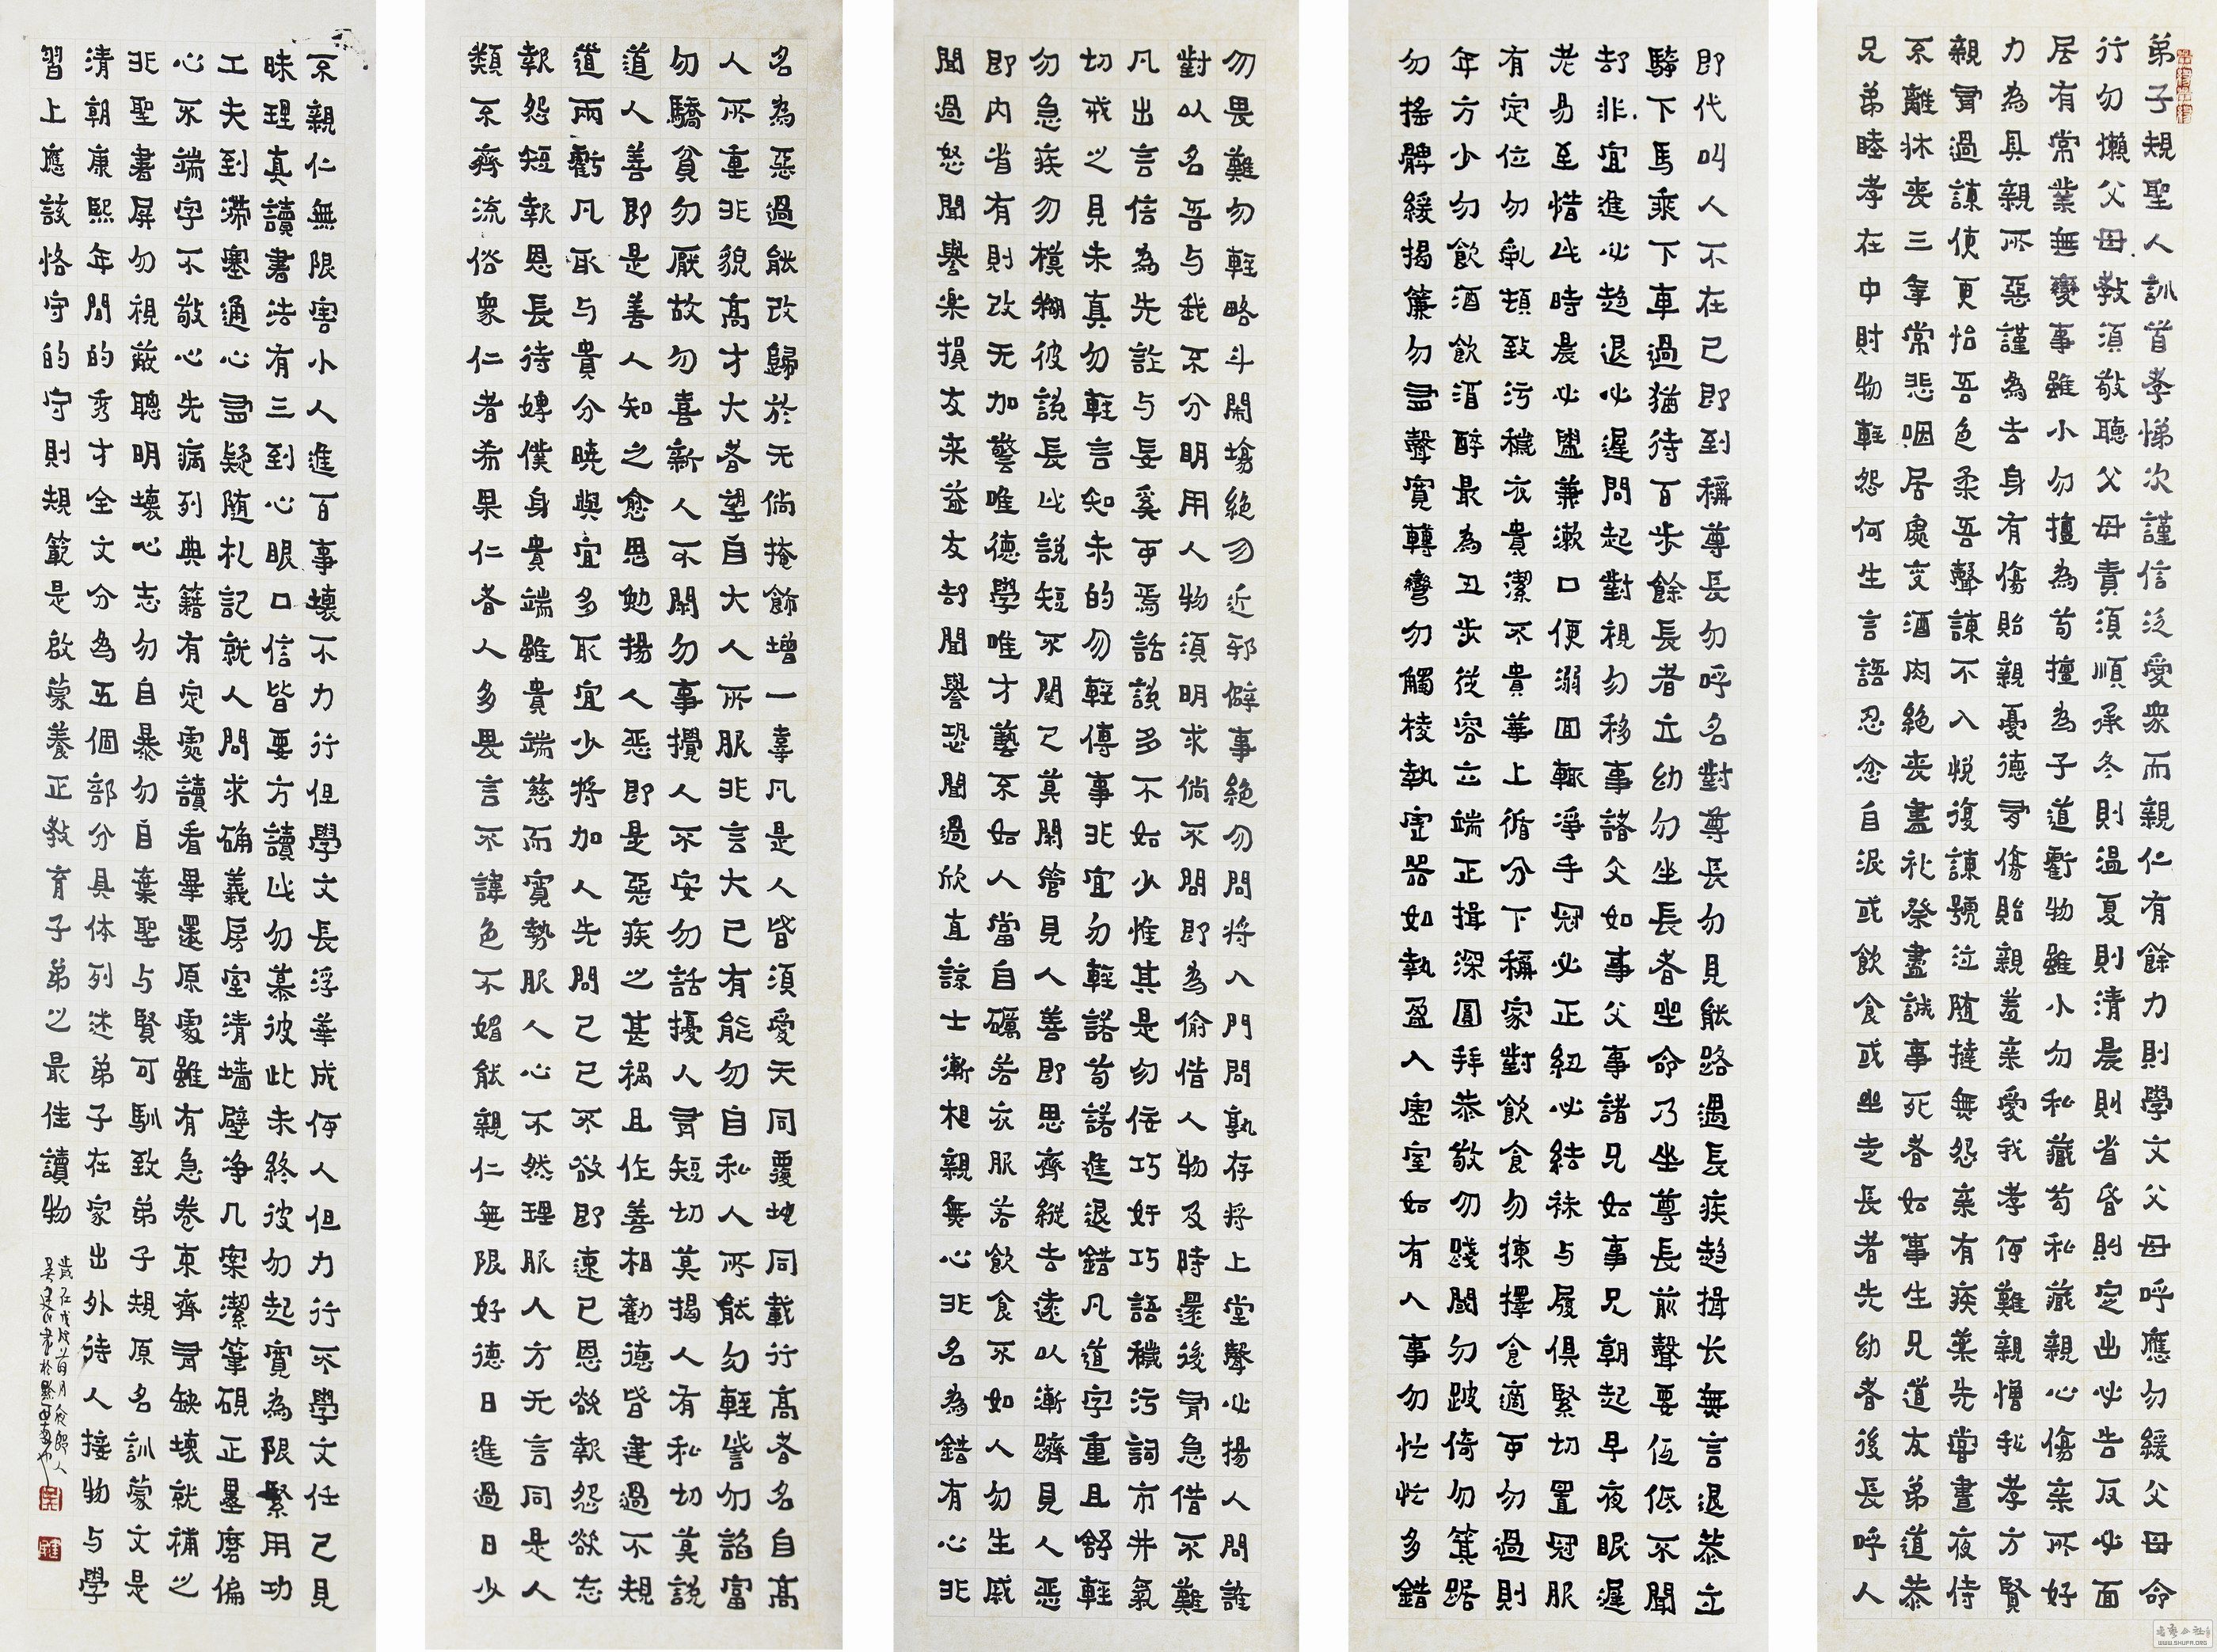 弟子規聖人訓首孝悌次謹信泛愛衆而親仁有餘力則學文父母呼應勿緩父母命
行勿懶父母教須敬聽父母責須順承冬則溫夏則清晨則省昏則定出必告反必面
居有常業無變事雖小勿擅為苟擅為子道虧物雖小勿私藏苟私藏親心傷亲所好
力為具親所惡謹為去身有傷貽親憂德有傷貽親羞亲愛我孝何難親憎我孝方賢
親有過諫使更怡吾色柔吾聲諫不入悅復諫號泣随撻無怨亲有疾藥先嘗晝夜侍
不離牀喪三年常悲咽居處变酒肉絕喪盡礼祭盡誠事死者如事生兄道友弟道恭
兄弟睦孝在中財物輕怨何生言語忍忿自泯或飲食或坐走長者先幼者後長呼人
即代叫人不在己即到稱尊長勿呼名對尊長勿見能路遇長疾趨揖长無言退恭立
騎下馬乘下車過猶待百步餘長者立幼勿坐長者坐命乃坐尊長前聲要低低不聞
却非宜進必趋退必遲問起對視勿移事諸父如事父事諸兄如事兄朝起早夜眠遲
老易至惜此時晨必盥兼漱口便溺回輒淨手冠必正紐必結袜与履俱緊切置冠服
有定位勿乱頓致污穢衣貴潔不貴華上循分下稱家對飲食勿揀擇食適可勿過則
年方少勿飲酒飲酒醉最為丑步從容立端正揖深圓拜恭敬勿踐閾勿跛倚勿箕踞
勿搖髀緩揭簾勿有聲寬轉彎勿觸棱執虛器如執盈入虛室如有人事勿忙忙多錯
勿畏難勿輕略斗鬧場絕勿近邪僻事絕勿問將入門問孰存將上堂聲必揚人問誰
對以名吾与我不分明用人物須明求倘不問即為偷借人物及時還後有急借不難
凡出言信為先詐与妄奚可焉話說多不如少惟其是勿佞巧奸巧語穢污詞市井氣
切戒之見未真勿輕言知未的勿輕傳事非宜勿輕諾苟諾進退錯凡道字重且舒輕
勿急疾勿模糊彼說長此說短不関己莫閑管見人善即思齊縱去遠以漸躋見人恶
即内省有則改无加警唯德學唯才藝不如人當自礪若衣服若飲食不如人勿生戚
聞過怒聞譽楽損友来益友却聞譽恐聞過欣直諒士漸相親無心非名為錯有心非
名為惡過能改歸於无倘掩飾增一辜凡是人皆須愛天同覆地同載行高者名自高
人所重非貌高才大者望自大人所服非言大己有能勿自私人所能勿輕訾勿諂富
勿驕貧勿厭故勿喜新人不閑勿事攪人不安勿話擾人有短切莫揭人有私切莫說
道人善即是善人知之愈思勉揚人恶即是惡疾之甚祸且作善相勸德皆建過不規
道兩虧凡取与貴分曉與宜多取宜少將加人先問己己不欲即速已恩欲報怨欲忘
報怨短報恩長待婢僕身貴端雖貴端慈而寬勢服人心不然理服人方无言同是人
類不齊流俗衆仁者希果仁者人多畏言不諱色不媚能親仁無限好德日進過日少
不親仁無限害小人進百事壞不力行但學文長浮華成何人但力行不學文任己見
昧理真讀書法有三到心眼口信皆要方讀此勿慕彼此未終彼勿起寬為限緊用功
工夫到滯塞通心有疑随札記就人問求确義房室清墙壁净几案潔筆硯正墨磨偏
心不端字不敬心先病列典籍有定處讀看畢還原處雖有急卷束齊有缺壞就補之
非聖書屏勿視蔽聰明壞心志勿自暴勿自棄聖与賢可馴致弟子規原名訓蒙文是
清朝康熙年間的秀才全文分為五個部分具体列述弟子在家出外待人接物与學
習上應該恪守的守則規範是啟蒙養正教育子弟之最佳讀物
歲在戊戌
WWW.SHUFA.ORG